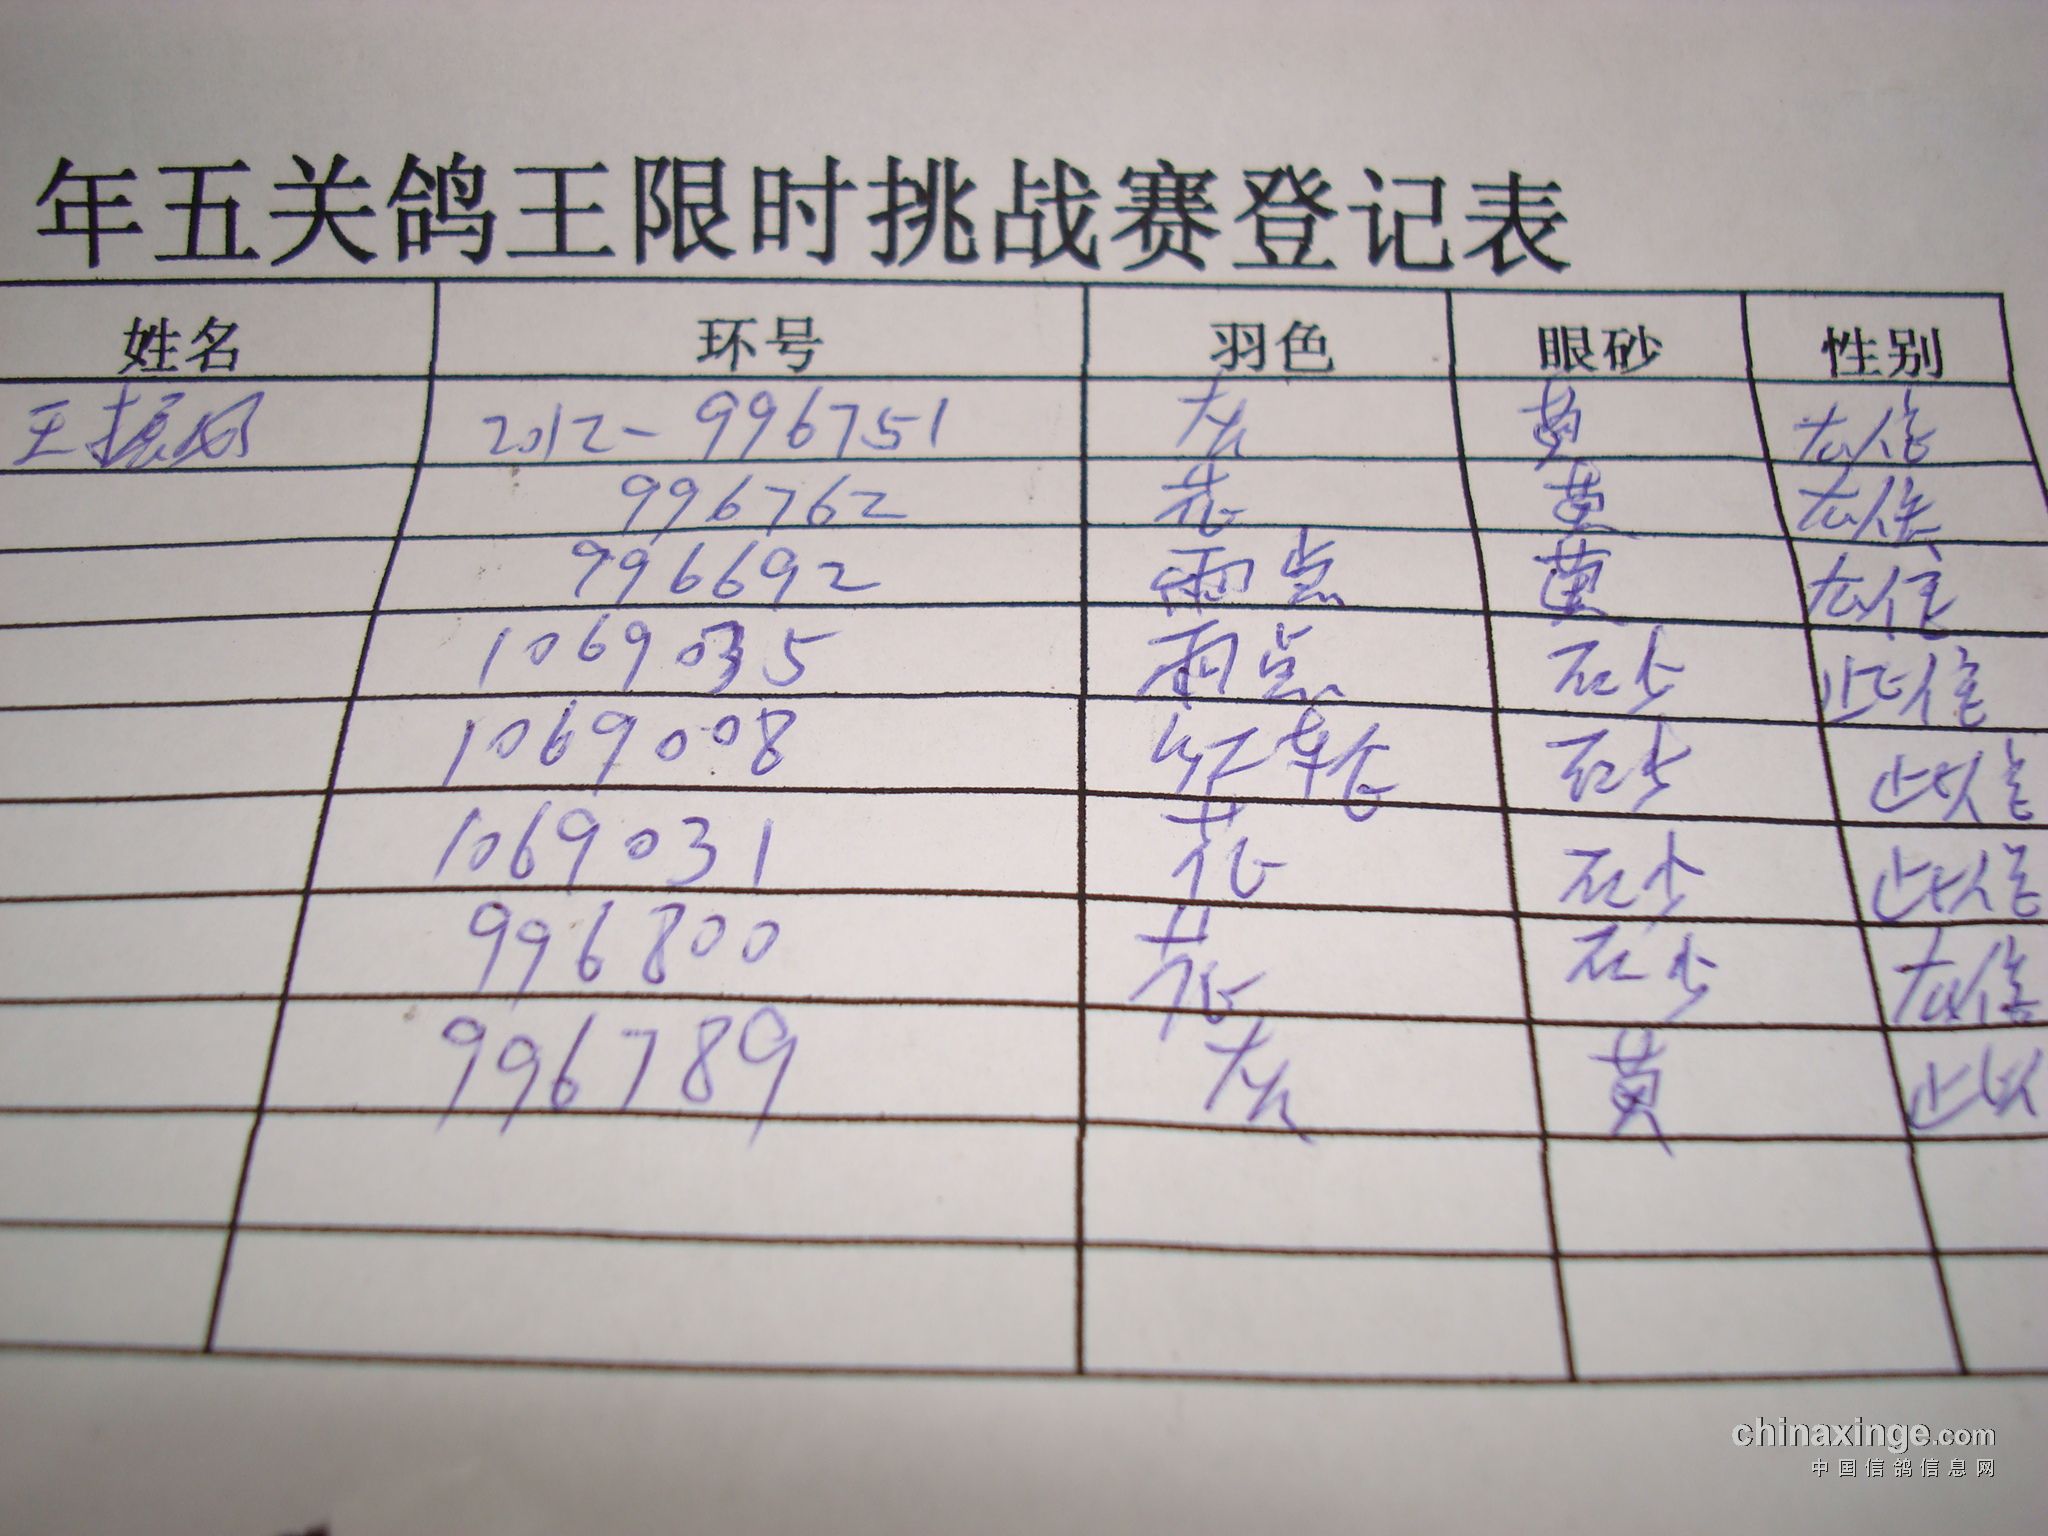 年五关鸽王限时挑战赛登记表
姓名 环号 羽色 眼砂 性别
王振 2012-996751 灰 黄 雄
996762 花 黄 雄
996692 雨点 黄 雄
1069035 雨点 砂 雌
1069008 红轮 砂 雌
1069031 花 砂 雌
996800 花 砂 雄
996789 灰 黄 雌
chinaxinge.com
中国信鸽信息网